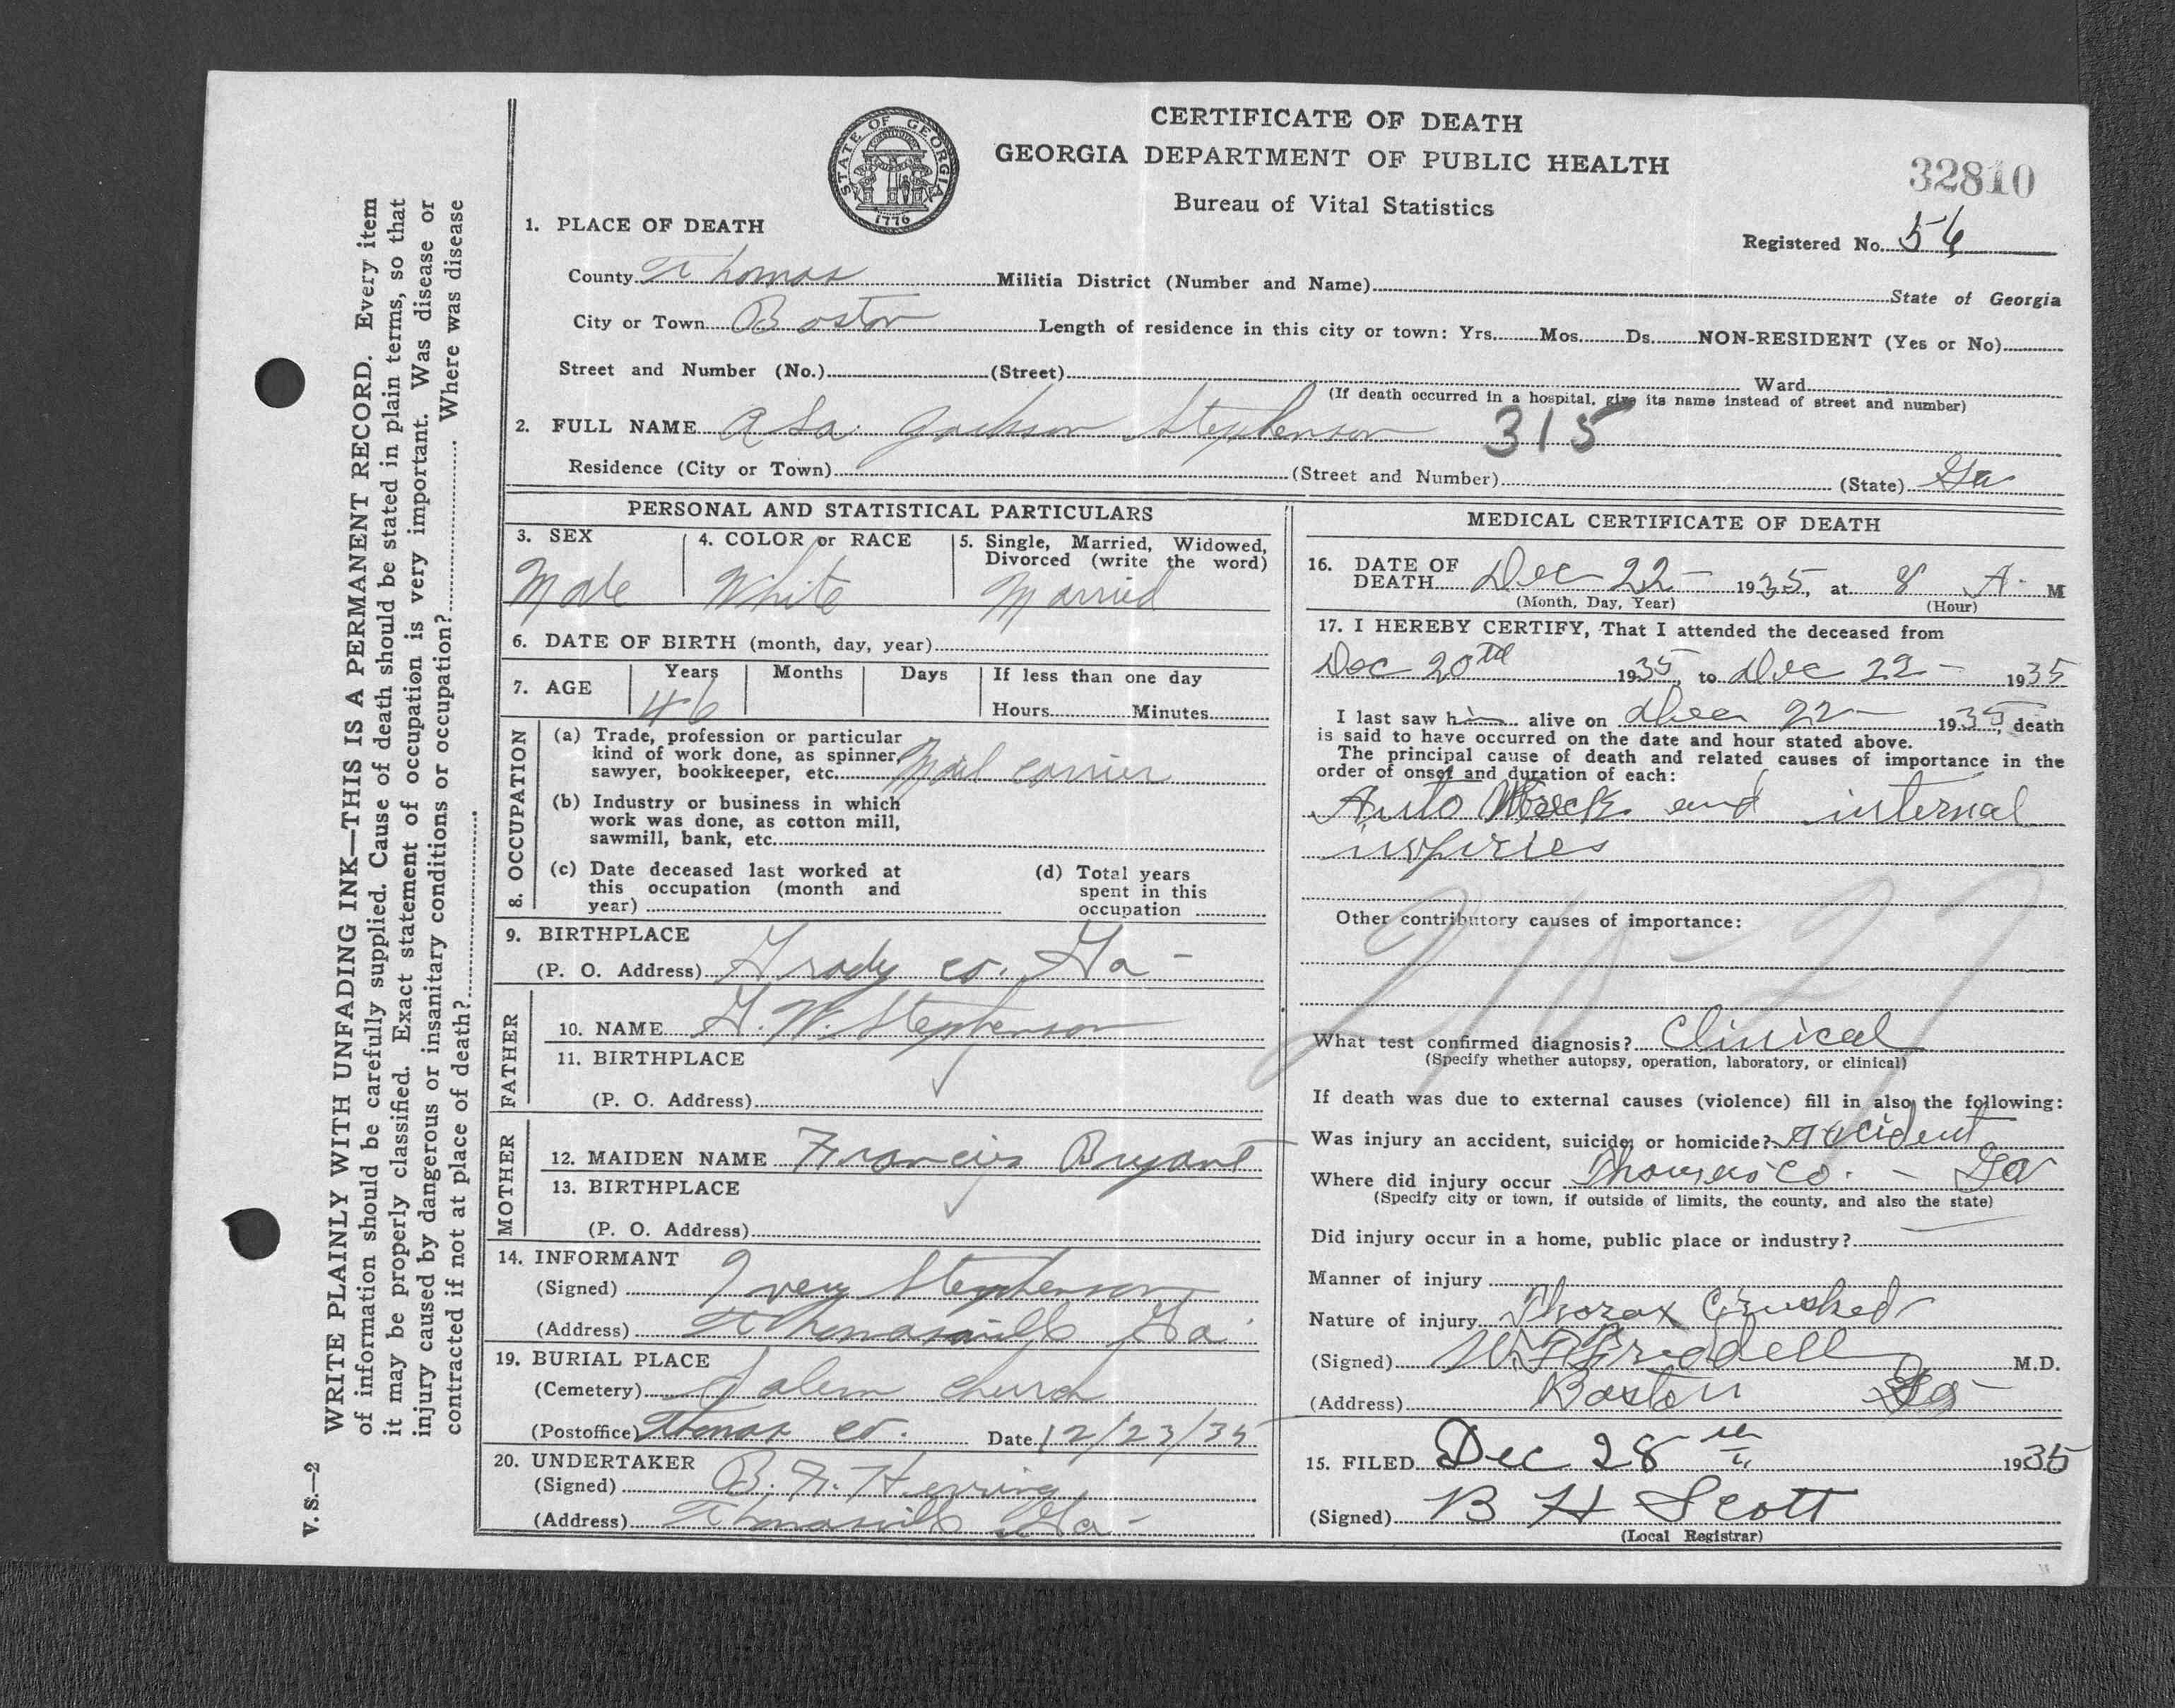 CERTIFICATE OF DEATH
GEORGIA DEPARTMENT OF PUBLIC HEALTH
Bureau of Vital Statistics
STATE OF GEORGIA
CONSTITUTION
1776
32810
Registered No. 56
1. PLACE OF DEATH
County Thomas Militia District (Number and Name) State of Georgia
City or Town Boston Length of residence in this city or town: Yrs. Mos. Ds. NON-RESIDENT (Yes or No)
Street and Number (No.) (Street) Ward
(If death occurred in a hospital, give its name instead of street and number)
2. FULL NAME Asa Jackson Stephenson 315
Residence (City or Town) (Street and Number) (State) Ga
PERSONAL AND STATISTICAL PARTICULARS
3. SEX 4. COLOR or RACE 5. Single, Married, Widowed,
Divorced (write the word)
Male White Married
6. DATE OF BIRTH (month, day, year)
7. AGE Years Months Days If less than one day
46 Hours Minutes
8. OCCUPATION
(a) Trade, profession or particular
kind of work done, as spinner,
sawyer, bookkeeper, etc. Mail carrier
(b) Industry or business in which
work was done, as cotton mill,
sawmill, bank, etc.
(c) Date deceased last worked at
this occupation (month and
year)
(d) Total years
spent in this
occupation
9. BIRTHPLACE
(P. O. Address) Grady co. Ga -
FATHER
10. NAME G. W. Stephenson
11. BIRTHPLACE
(P. O. Address)
MOTHER
12. MAIDEN NAME Francis Bryant
13. BIRTHPLACE
(P. O. Address)
14. INFORMANT
(Signed) Ivey Stephenson
(Address) Thomasville Ga
19. BURIAL PLACE
(Cemetery) Salem church
(Postoffice) Thomas co. Date 12/23/35
20. UNDERTAKER
(Signed) B. F. Herring
(Address) Thomasville Ga -
MEDICAL CERTIFICATE OF DEATH
16. DATE OF
DEATH Dec 22 - 1935, at 8 A. M
(Month, Day, Year) (Hour)
17. I HEREBY CERTIFY, That I attended the deceased from
Dec 20th 1935, to Dec 22 - 1935
I last saw him alive on Dec 22 - 1935, death
is said to have occurred on the date and hour stated above.
The principal cause of death and related causes of importance in the
order of onset and duration of each:
Auto Wreck and internal
injuries
Other contributory causes of importance:
What test confirmed diagnosis? Clinical
(Specify whether autopsy, operation, laboratory, or clinical)
If death was due to external causes (violence) fill in also the following:
Was injury an accident, suicide, or homicide? Accident
Where did injury occur Thomas co. - Ga
(Specify city or town, if outside of limits, the county, and also the state)
Did injury occur in a home, public place or industry?
Manner of injury
Nature of injury Thorax Crushed
(Signed) M.D.
(Address) Boston Ga -
15. FILED Dec 28 th 1935
(Signed) B H Scott
(Local Registrar)
WRITE PLAINLY WITH UNFADING INK—THIS IS A PERMANENT RECORD. Every item
of information should be carefully supplied. Cause of death should be stated in plain terms, so that
it may be properly classified. Exact statement of occupation is very important. Was disease or
injury caused by dangerous or insanitary conditions or occupation? Where was disease
contracted if not at place of death?
V. S.—2